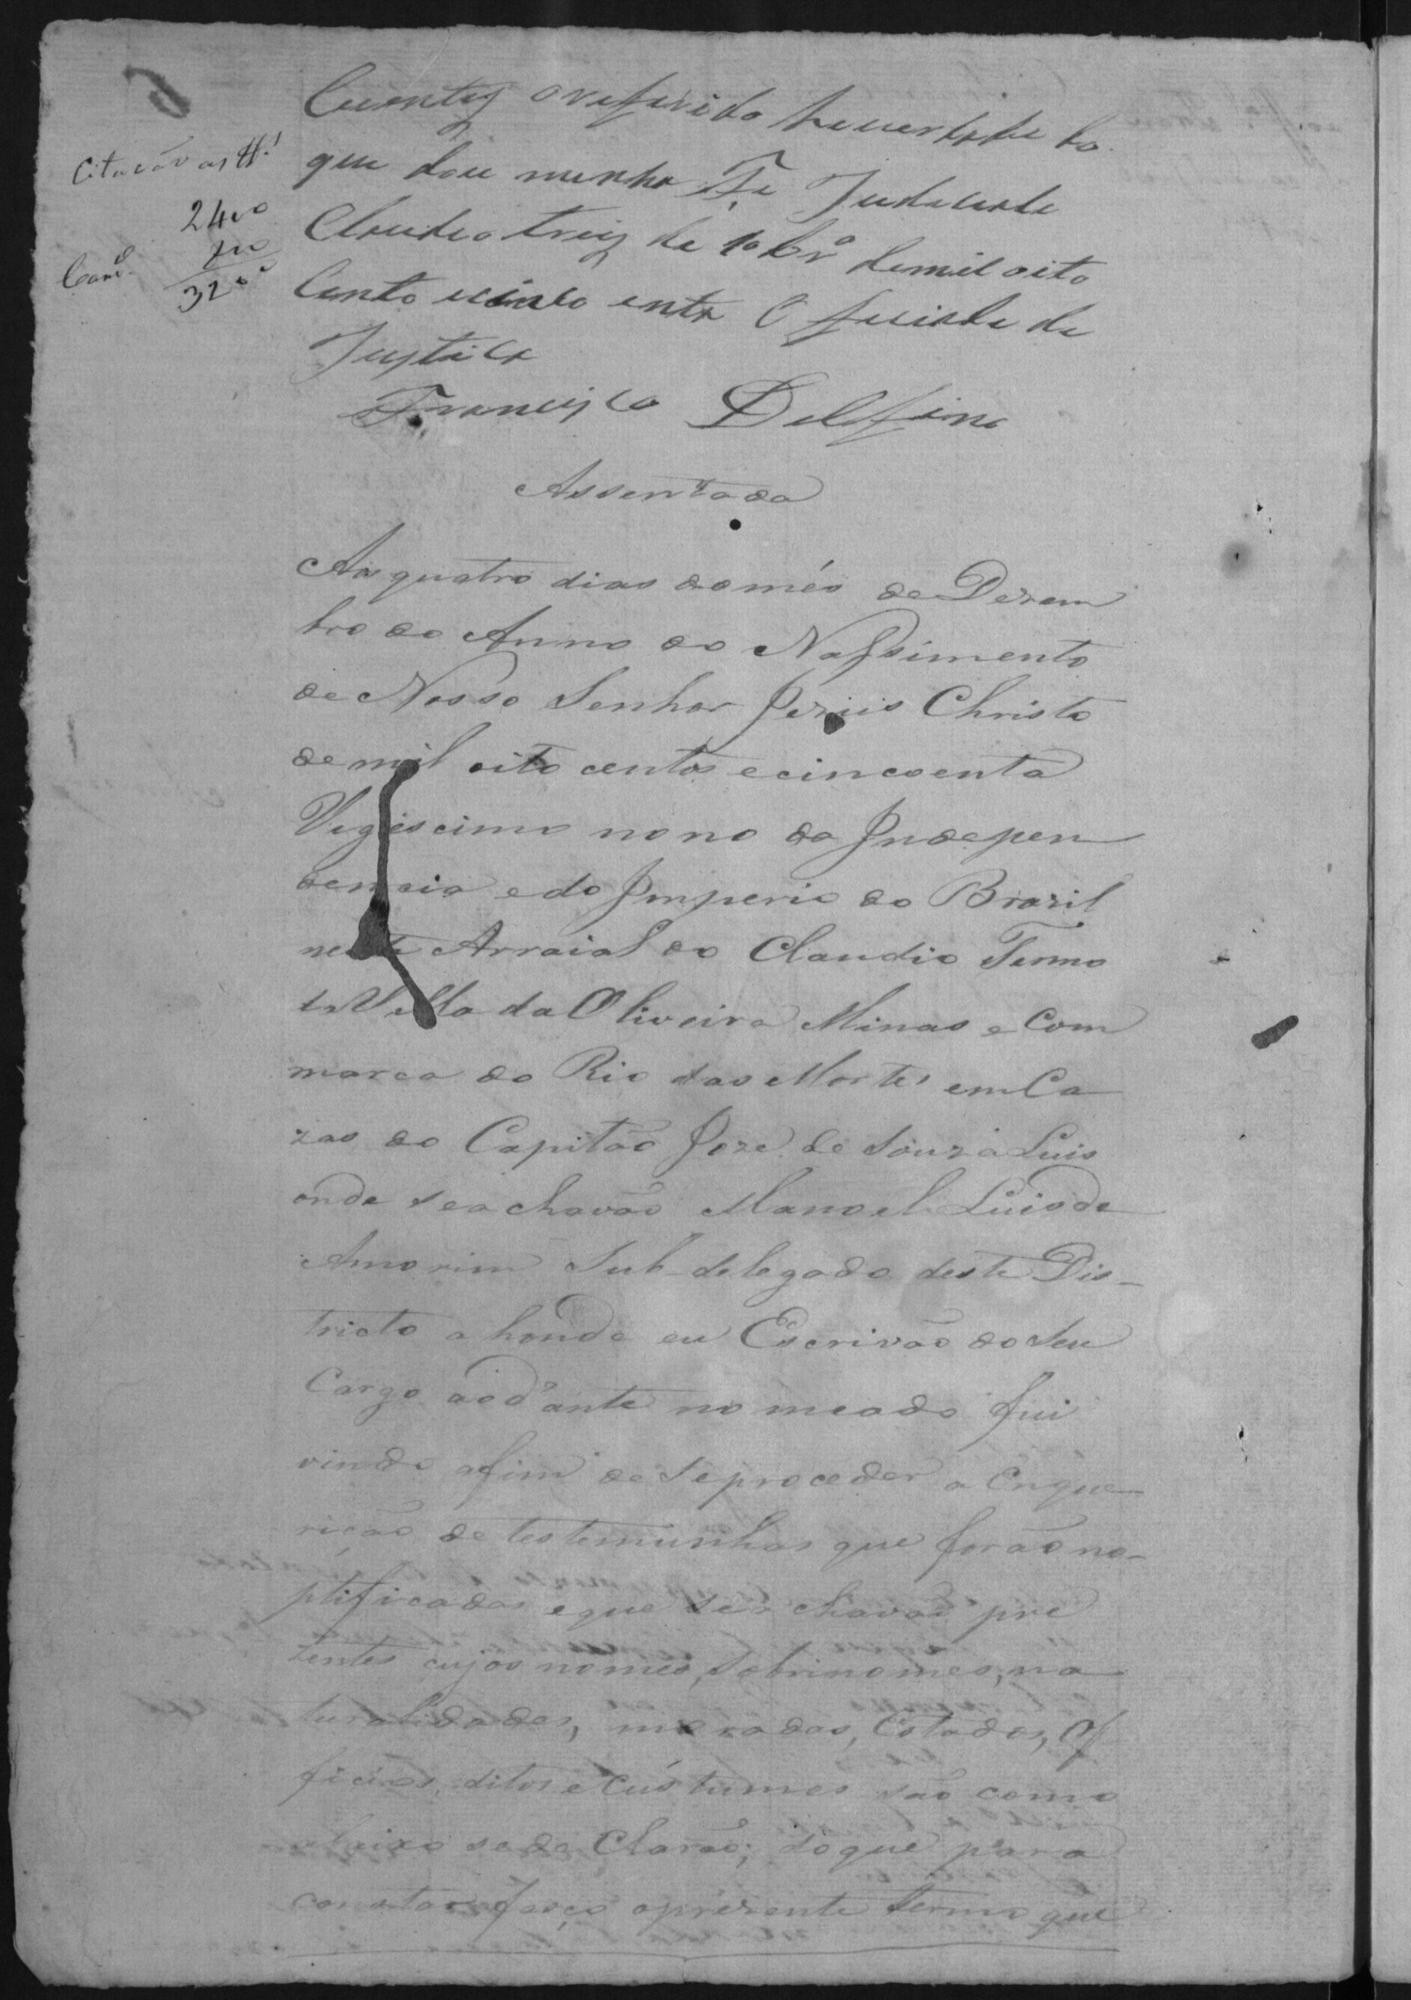 Cientes o referido he verdade do
que dou minha Fe Judicado
Claudio treis de 10br.º de mil oito
Cento e cincoenta O ficiale de
Justica
Francisco Delfino
Citacão as tt.
2400
Cam.
3200
Assentada
Aos quatro dias do més de Dezem
bro do Anno do Nassimento
de Nosso Senhor Jezuis Christo
de mil oito centos e cincoenta
Vigescimo nono da Indepen
dencia e do Imperio do Brazil
neste Arraial do Claudio Termo
da Villa da Oliveira Minas e Com
marca do Rio das Mortes em Ca
zas do Capitão Joze de Souza Luis
onde se achavão Manoel Luis de
Amorim Sub-delegado deste Dis-
tricto a honde eu Escrivão do Seu
Cargo aod'ante nomeado fui
vindo afim de Se proceder a Enque
rição de testemunhas que forão no-
ptificadas e que se achavão pre
zentes cujos nomes, sobrinomes, na
turalidades, moradas, Estados, Of
ficios, ditos e Cústumes são como
abaixo se de Clarão; do que para
constar faço o prezente termo que